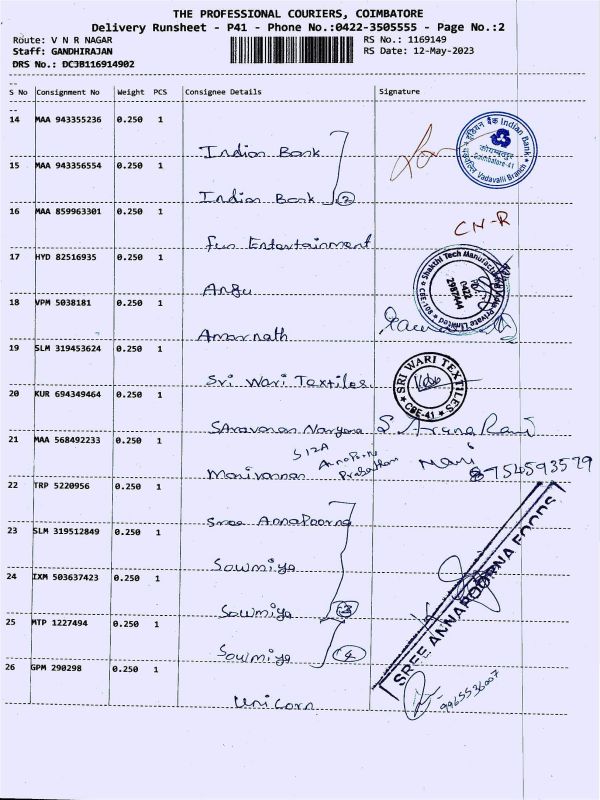 THE PROFESSIONAL COURIERS, COIMBATORE
Delivery Runsheet - P41 - Phone No.:0422-3505555 - Page No.:2
Route: V N R NAGAR RS No.: 1169149
Staff: GANDHIRAJAN RS Date: 12-May-2023
DRS No.: DCJB116914902
S No Consignment No Weight PCS Consignee Details Signature
14 MAA 943355236 0.250 1
Indian Bank
इंडियन बैंक Indian Bank
Coimbatore-41
Vadavalli Branch
15 MAA 943356554 0.250 1
Indian Bank 2
16 MAA 859963301 0.250 1
CN-R
Fun Entertainment
17 HYD 82516935 0.250 1
Angu
Shakthi Tech Manufacturing
Private Limited
0422
2987444
18 VPM 5038181 0.250 1
Amarnath
19 SLM 319453624 0.250 1
Sri Wari Textiles
SRI WARI TEXTILES
CBE-41
20 KUR 694349464 0.250 1
Saravanan S. Aruna Rani
21 MAA 568492233 0.250 1
Manivannan Mani 9754593529
22 TRP 5220956 0.250 1
Sree Annapoorna
23 SLM 319512849 0.250 1
Sowmiya
24 IXM 503637423 0.250 1
Sowmiya 3
25 MTP 1227494 0.250 1
Sowmiya 4
SREE ANNAPOORNA FOODS
26 GPM 290298 0.250 1
Unicorn
9965536007